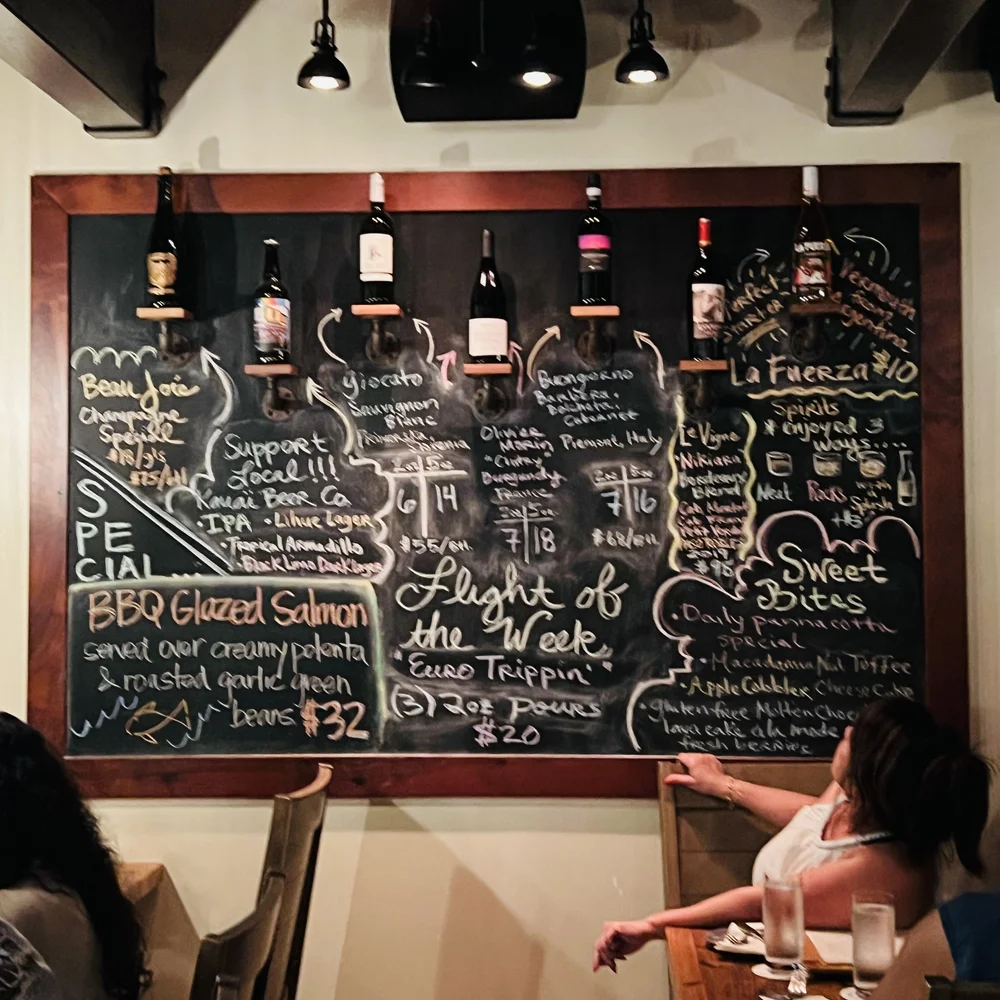 Beau Joie
Champagne
Special
S
PE
CIAL
BBQ Glazed Salmon
served over creamy polenta
& roasted garlic green
beans $32
Support
Local!!!
Kauai Beer Co
• IPA • Lihue Lager
• Tropical Armadillo
• Black Limo Dark Lager
Giocato
Sauvignon
Blanc
2oz 5oz
6 14
$55/btl.
Olivier
Morin
Burgundy
France
2oz 5oz
7 18
Buongiorno
Barbera,
Dolcheto,
Cabernet
Piemont, Italy
2oz 5oz
7 16
$62/btl
Flight of
the Week
"Euro Trippin"
(3) 2oz pours
$20
Le Vigne
"Nikiara"
Bordeaux
Blend
2019
La Fuerza $10
Spirits
* enjoyed 3
ways....
Neat Rocks with a
Splash
Sweet
Bites
• Daily pannacotta
special
• Macadamia Nut Toffee
• Apple Cobbler Cheese Cake
• gluten-free Molten Choc
lava cake ala mode
fresh berries